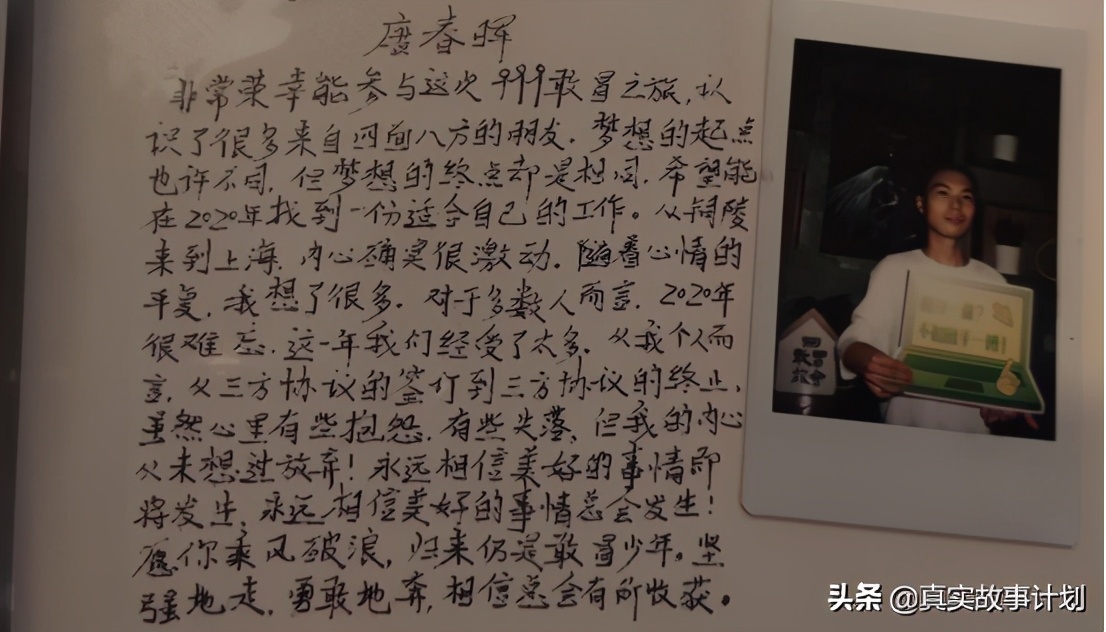 春晖
非常荣幸能参与这次999敢冒之旅，认
识了很多来自四面八方的朋友．梦想的起点
也许不同，但梦想的终点却是相同，希望能
在2020年找到一份适合自己的工作。从铜陵
来到上海，内心确实很激动．随着心情的
平复，我想了很多．对于多数人而言，2020年
很难忘，这一年我们经受了太多．从我个人而
言，从三方协议的签订到三方协议的终止，
虽然心里有些抱怨，有些失落，但我的内心
从未想过放弃！永远相信美好的事情即
将发生，永远相信美好的事情总会发生！
愿你乘风破浪，归来仍是敢冒少年。坚
强地走，勇敢地奔，相信总会有所收获。
敢冒
头条 @真实故事计划